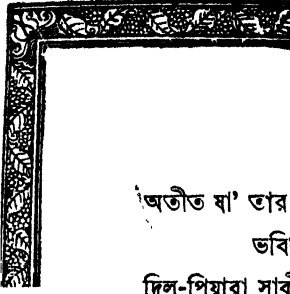 অতীত যা' তার
ভবি
দিল-পিয়ারা